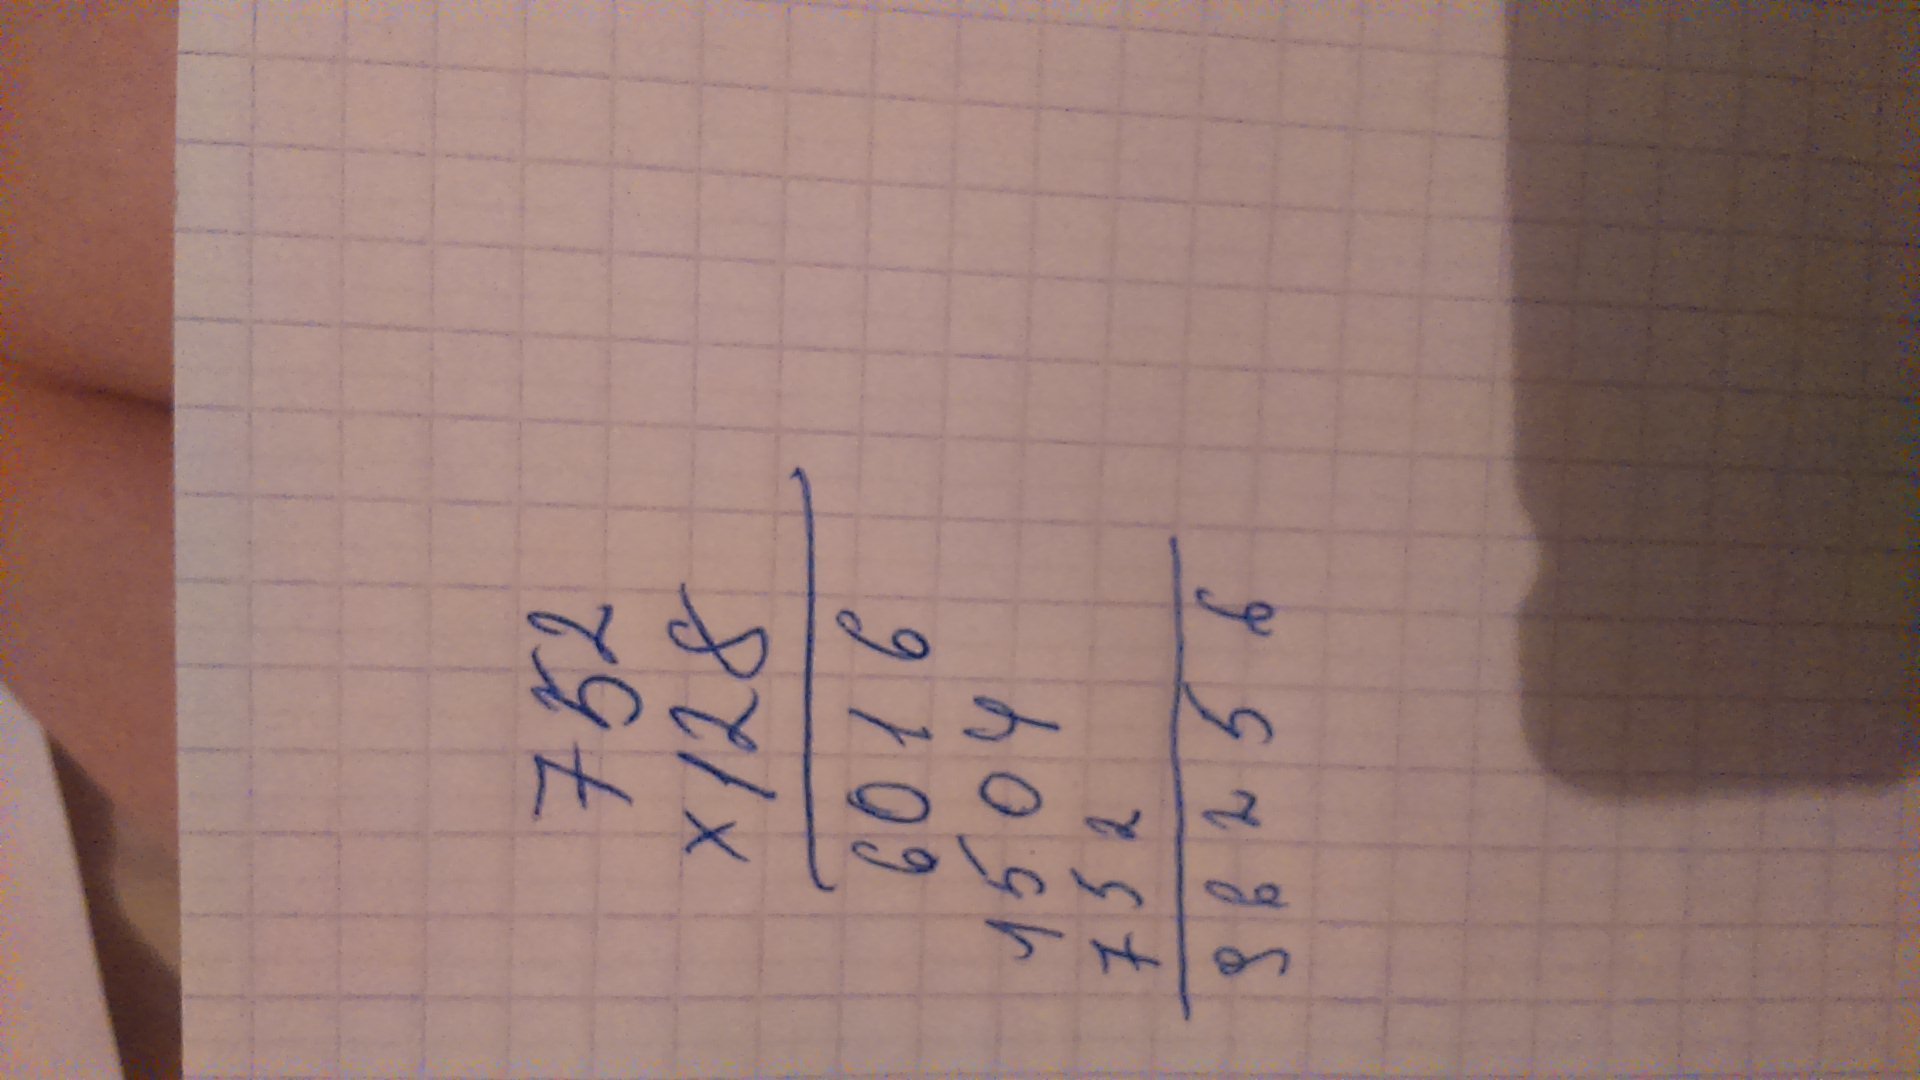 752
×128
6016
1504
752
96256